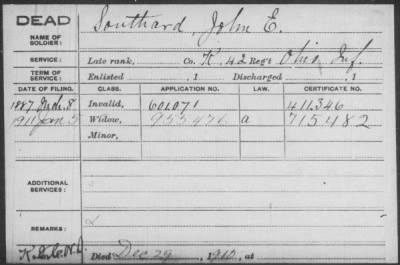 DEAD
NAME OF SOLDIER: Southard, John E.
SERVICE: Late rank, Co. K, 42 Reg't Ohio Inf.
TERM OF SERVICE: Enlisted , 1 Discharged , 1
DATE OF FILING. CLASS. APPLICATION NO. LAW. CERTIFICATE NO.
1887 8 Invalid, 601.071 411.346
1911 Jan. 5 Widow, a 715482
Minor,
ADDITIONAL SERVICES:
REMARKS:
Died Dec 29, 1910, at